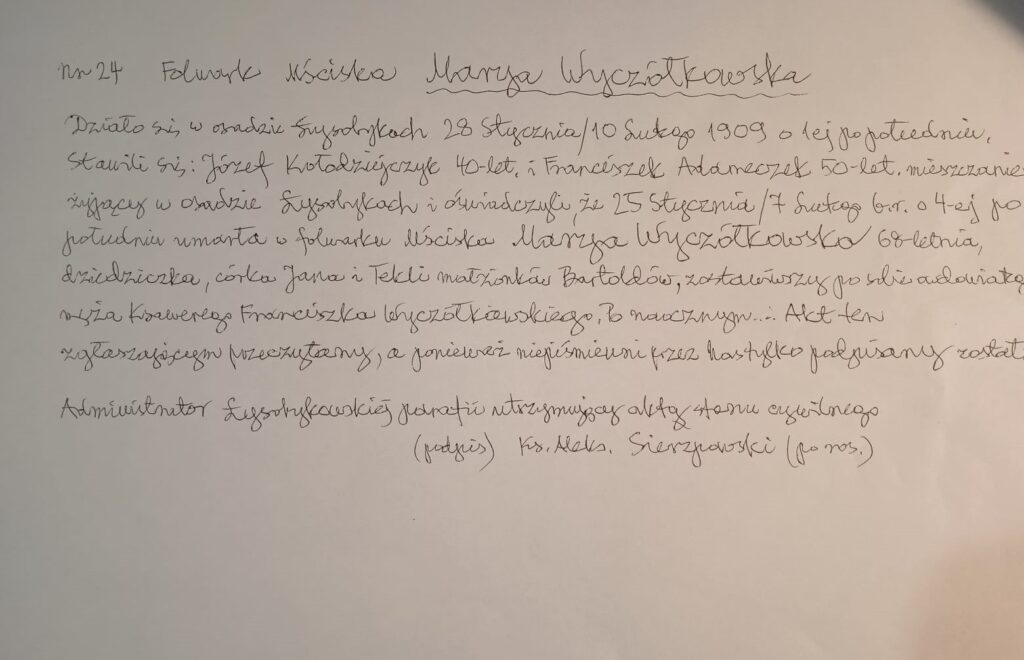 nr 24 Folwark Mściska Marya Wyczółkowska
Działo się w osadzie Łysobykach 28 Stycznia/10 Lutego 1909 o 1ej po południu.
Stawili się: Józef Kołodziejczyk 40-let. i Franciszek Adameczek 50-let. mieszczanie
żyjący w osadzie Łysobykach i oświadczyli, że 25 Stycznia/7 Lutego b.r. o 4-ej po
południu umarła w folwarku Mściska Marya Wyczółkowska 68-letnia,
dziedziczka, córka Jana i Tekli małżonków Bartoldów, zostawiwszy po sobie owdowiałego
męża Ksawerego Franciszka Wyczółkowskiego. Po naocznym... Akt ten
zgłaszającym przeczytany, a ponieważ niepiśmienni przez nas tylko podpisany został.
Administrator Łysobykowskiej parafii utrzymujący akta stanu cywilnego
(podpis) Ks. Aleks. Sierzpowski (po ros.)